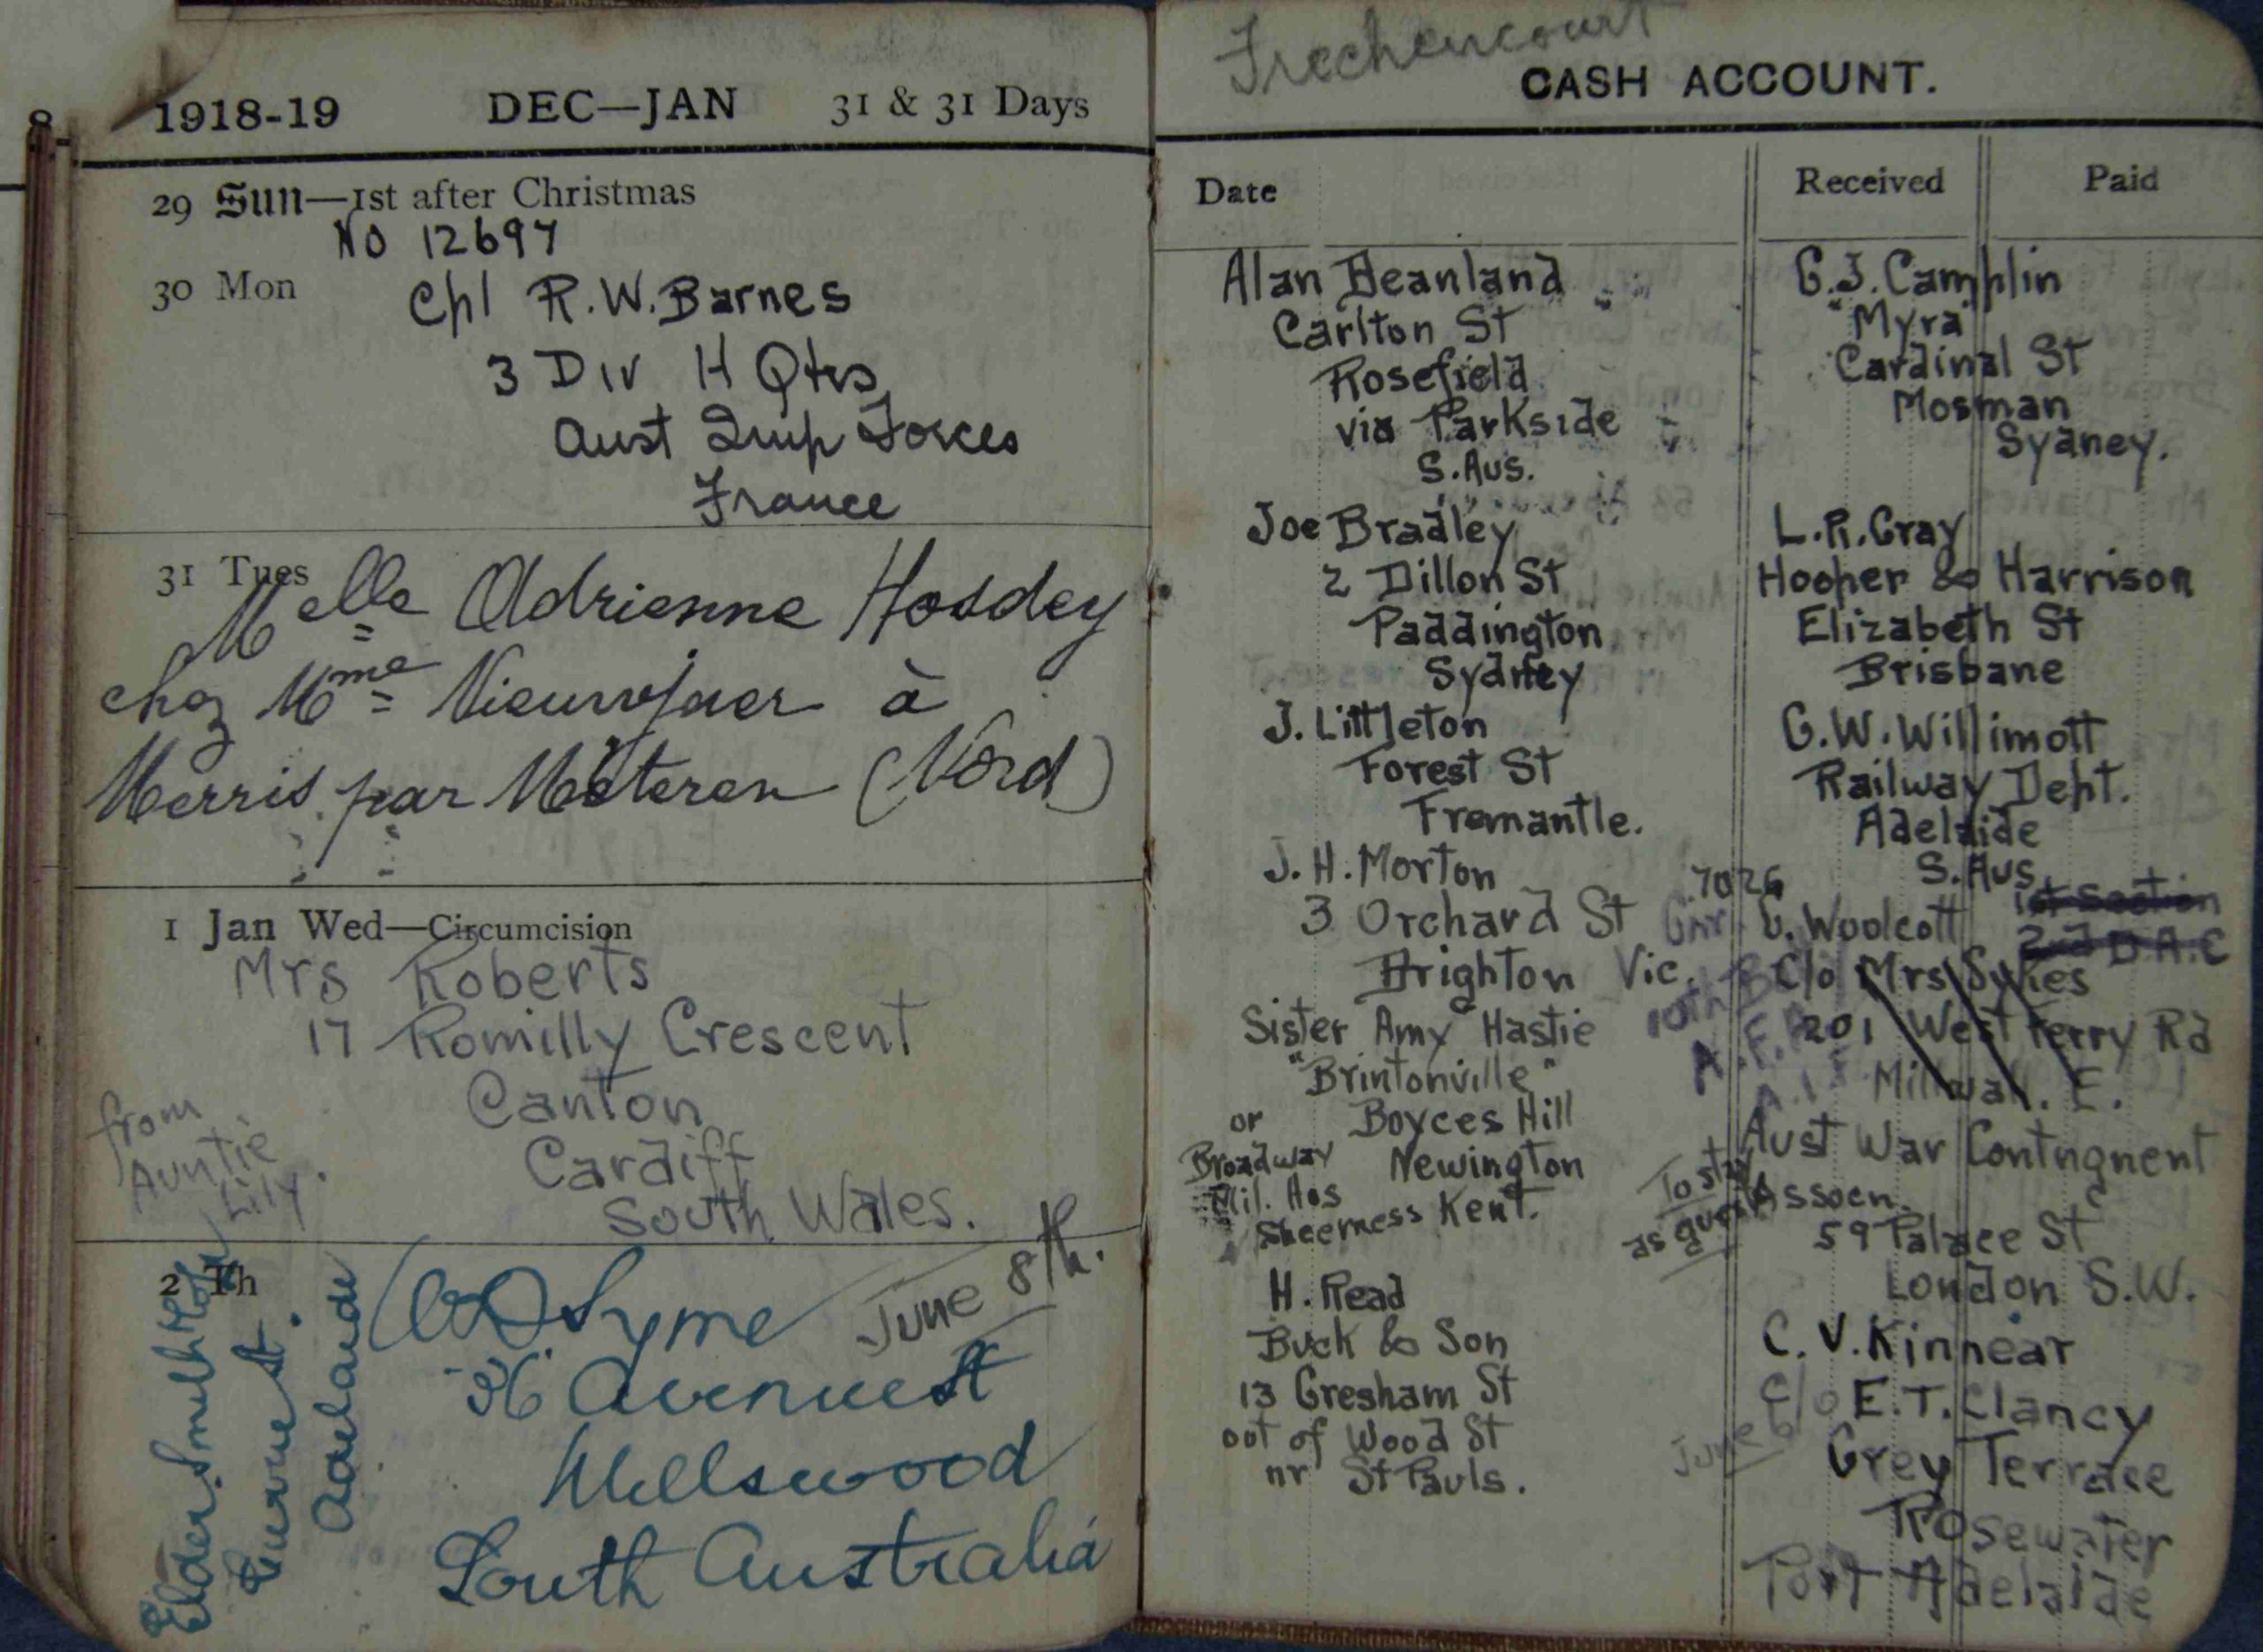 8.
1918-19 DEC—JAN 31 & 31 Days
29 Sun—1st after Christmas
No 12697
30 Mon
Cpl R.W. Barnes
3 Div H Qtrs
Aust Imp Forces
France
31 Tues
Melle Adrienne Hosdey
chez Mme Nieuwjaer à
Merris par Méteren (Nord)
1 Jan Wed—Circumcision
Mrs Roberts
17 Romilly Crescent
Canton
Cardiff
South Wales.
from
Auntie
Lily.
2 Th
Syme
June 8th.
36 Avenue St
Millswood
South Australia
Elder Smith
Currie St.
Adelaide
Frechencourt
CASH ACCOUNT.
Date
Alan Beanland
Carlton St
Rosefield
via Parkside
S. Aus.
Joe Bradley
2 Dillon St
Paddington
Sydney
J. Littleton
Forest St
Fremantle.
J. H. Morton
3 Orchard St
Brighton Vic.
Sister Amy Hastie
"Brintonville"
Boyces Hill
Newington
Kent.
or
Broadway
Mil. Hos
Sheerness
H. Read
Buck & Son
13 Gresham St
out of Wood St
nr St Pauls.
Received Paid
G.J. Camplin
"Myra"
Cardinal St
Mosman
Sydney.
L.R. Gray
Hooper & Harrison
Elizabeth St
Brisbane
G.W. Willimott
Railway Dept.
Adelaide
S. Aus.
7026
Gnr. Woolcott
1st Section
2nd D.A.C
10th
A.F.A
A.I.F.
C/o Mrs Sykes
201 West Ferry Rd
Millwall. E.
Aust War Contngnent
Assocn.
59 Palace St
London S.W.
To stay
as guest
C. V. Kinnear
c/o E.T. Clancy
Grey Terrace
Rosewater
Port Adelaide
June 6